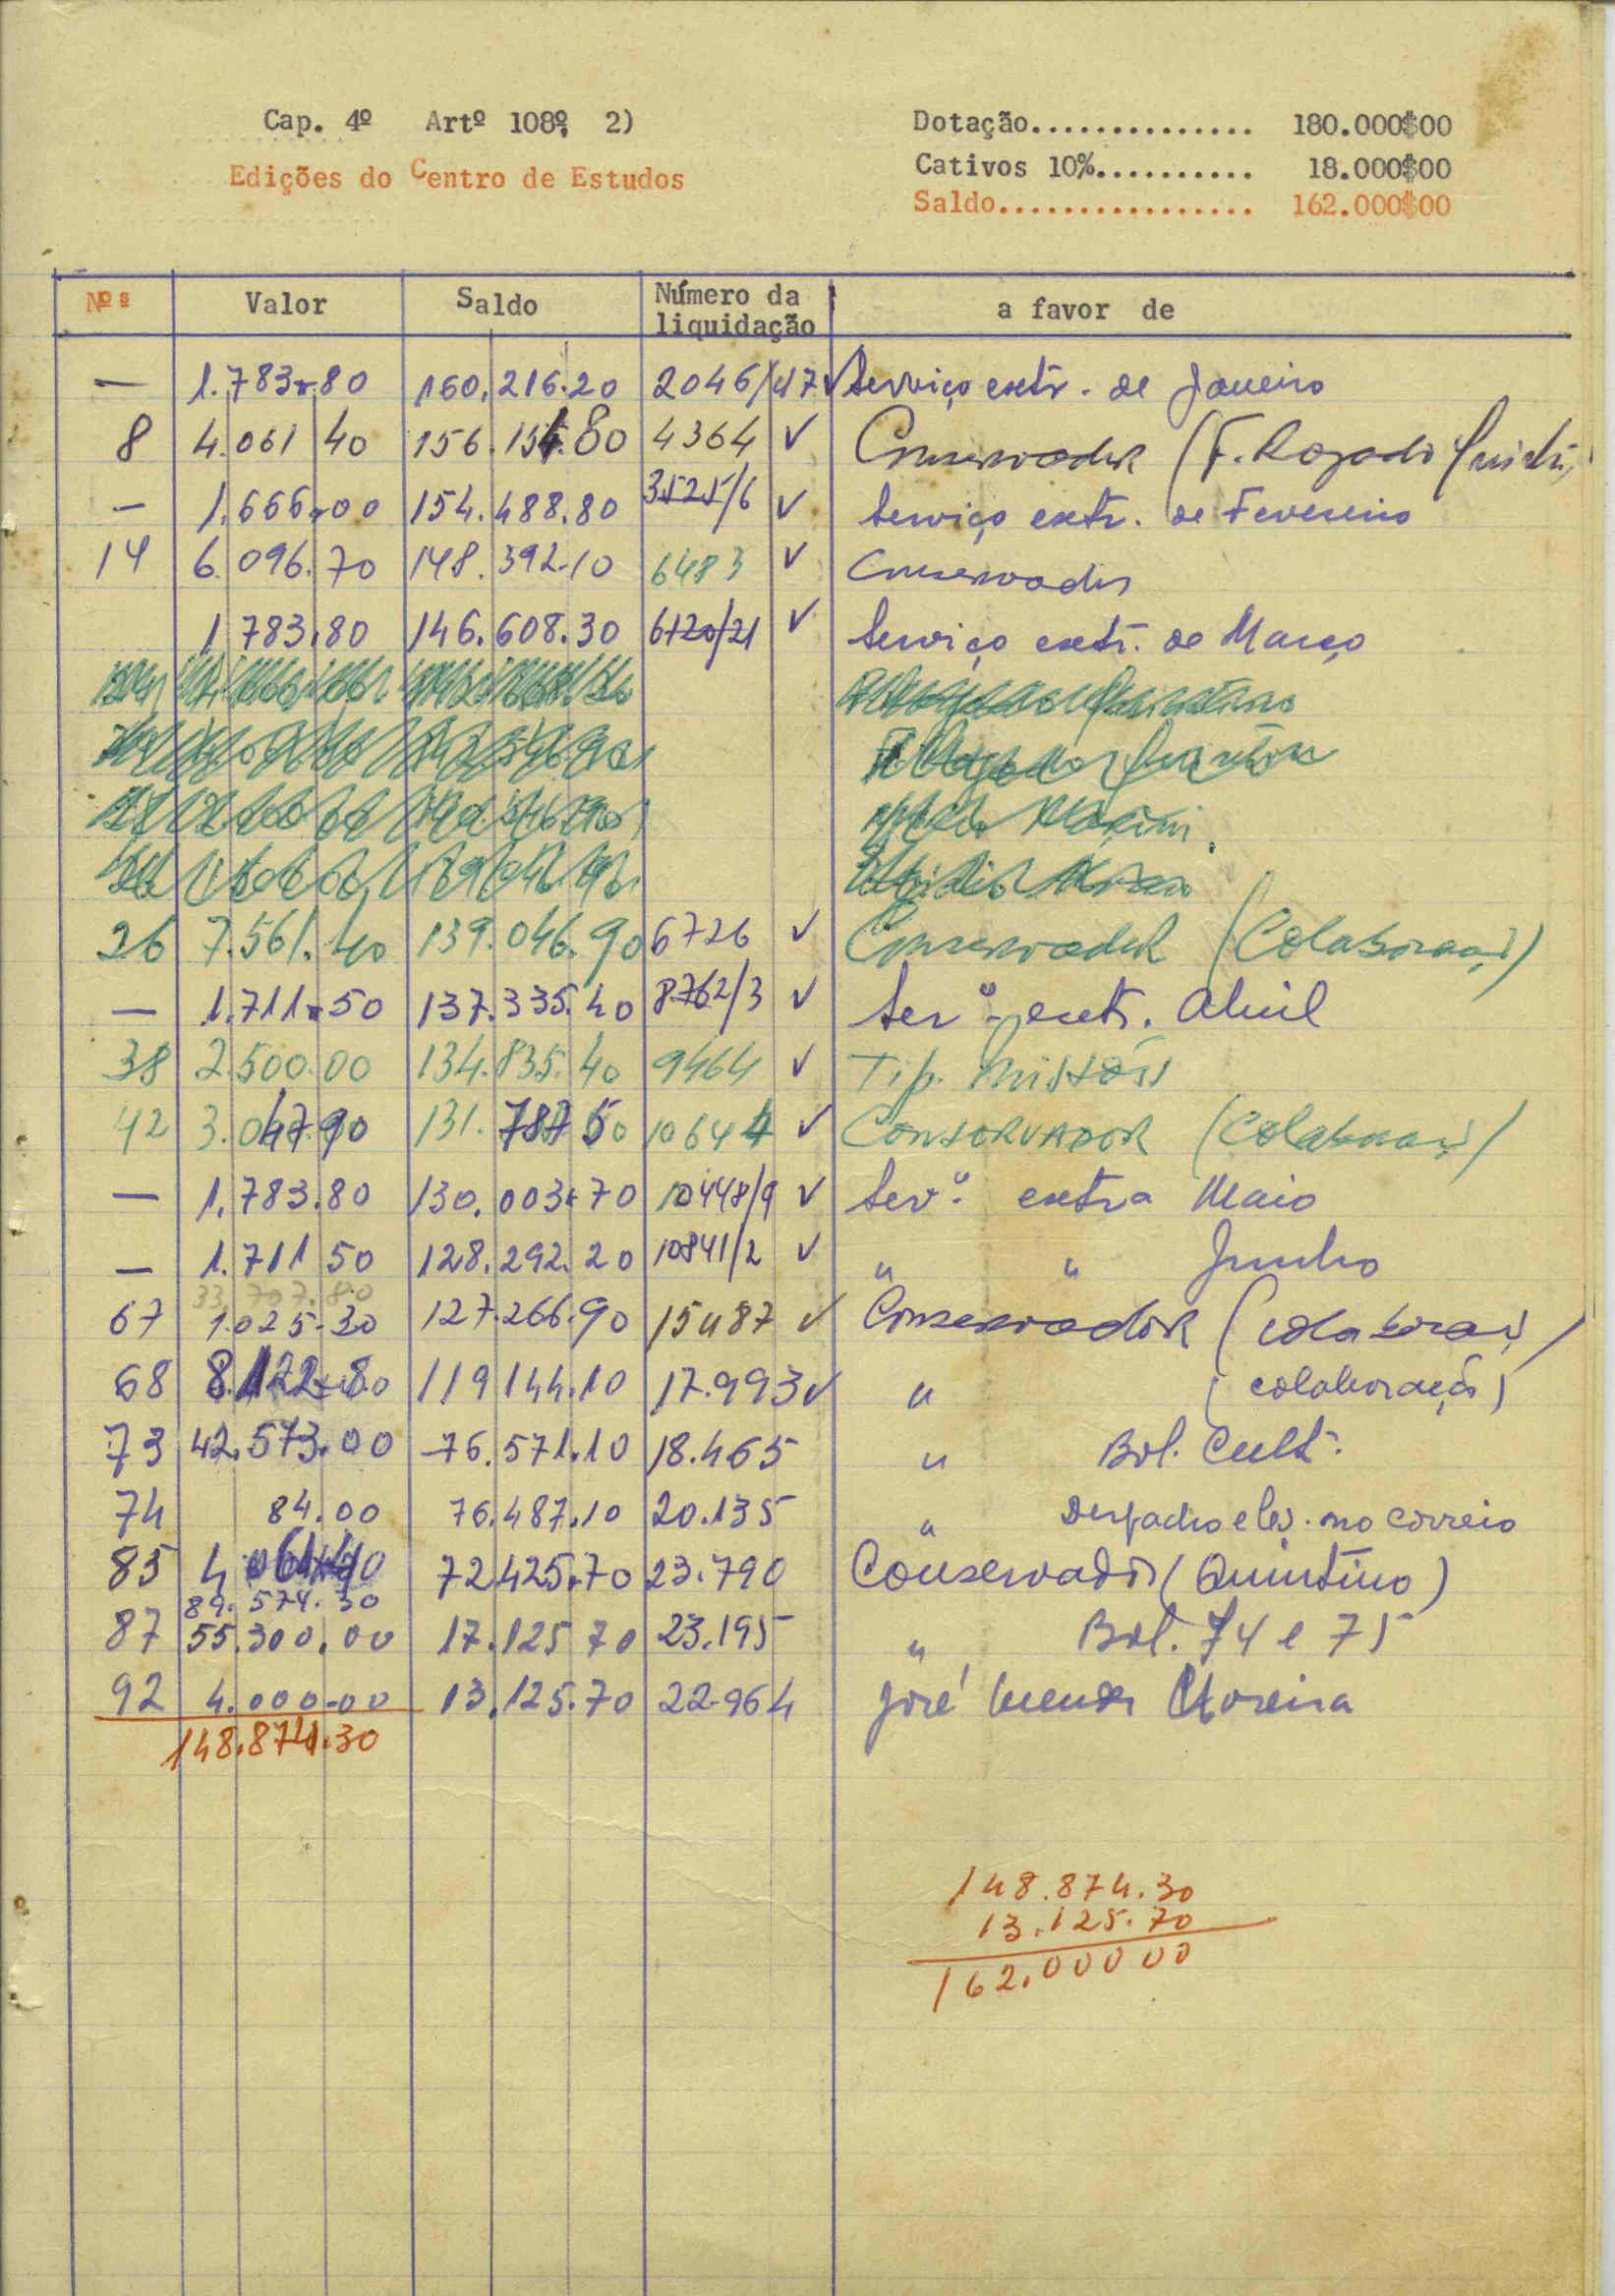 Cap. 4º Artº 108º, 2)
Edições do Centro de Estudos
Dotação.............. 180.000$00
Cativos 10%.......... 18.000$00
Saldo................ 162.000$00
Nºs Valor Saldo Número da liquidação a favor de
— 1.783.80 160.216.20 2046/47 ✓ Serviço extr. de Janeiro
8 4.061 40 156.154.80 4364 ✓ Conservador (F. Rogado
— 1.666.00 154.488.80 3525/6 ✓ Serviço extr. de Fevereiro
14 6.096.70 148.392.10 6483 ✓ Conservador
1 783.80 146.608.30 6120/21 ✓ Serviço extr. de Março
26 7.561.40 139.046.90 6726 ✓ Conservador (Colaboraç)
— 1.711.50 137.335.40 8762/3 ✓ Servº extr. Abril
38 2.500.00 134.835.40 9464 ✓ Tip. Missões
42 3.047.90 131.787 50 10644 ✓ CONSERVADOR (Colaboraç)
— 1.783.80 130.003.70 10448/9 ✓ Servº extra Maio
— 1.711 50 128.292.20 10841/2 ✓ " " Junho
33.707.80
67 1.025.30 127.266.90 15487 ✓ Conservador (colaboraç)
68 8.122.80 119 144.10 17.993 ✓ " (colaboração)
73 42.573.00 76.571.10 18.465 " Bol. Cult.
74 84.00 76.487.10 20.135 " Despacho elev. no correio
85 4.061.40 72 425.70 23.790 Conservador (Quintino)
89.574.30
87 55.300.00 17.125 70 23.195 " Bol. 74 e 75
92 4.000.00 13.125.70 22.964 José Mendes Moreira
148.874.30
148.874.30
13.125.70
162.000 00